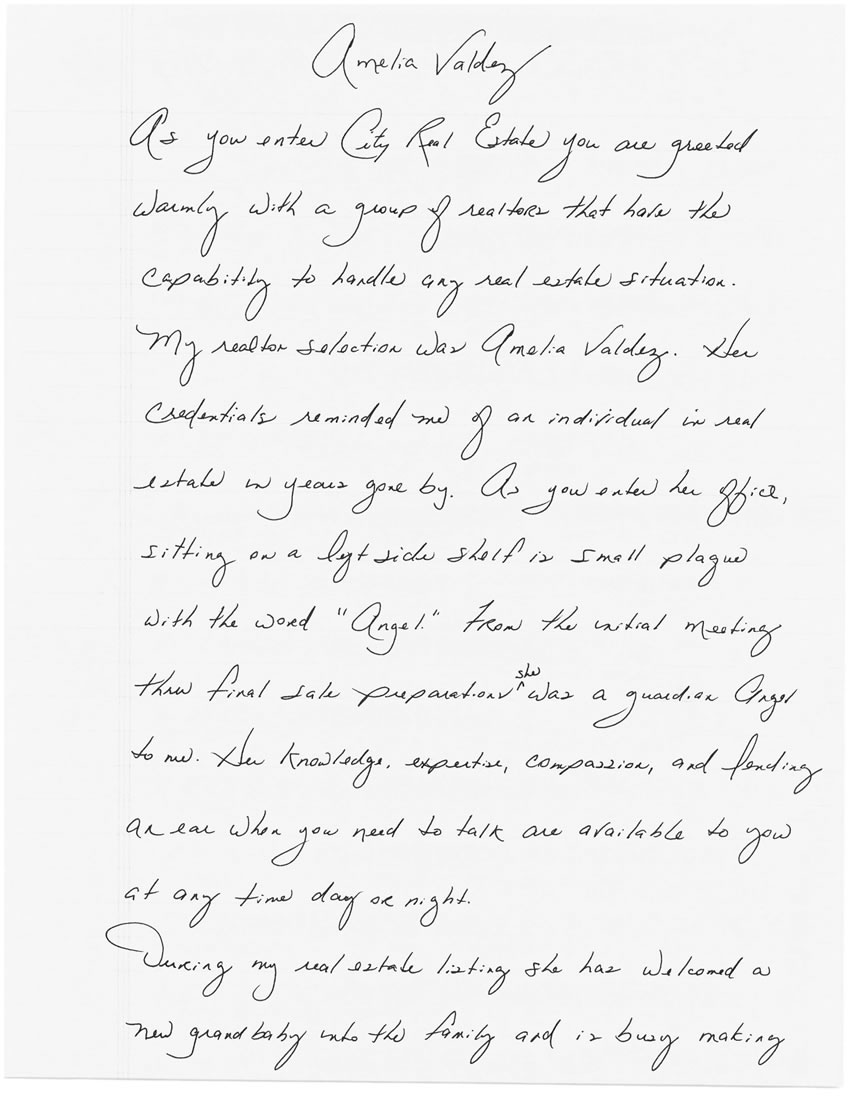 Amelia Valdez
As you enter City Real Estate you are greeted
warmly with a group of realtors that have the
capability to handle any real estate situation.
My realtor selection was Amelia Valdez. Her
credentials reminded me of an individual in real
estate in years gone by. As you enter her office,
sitting on a left side shelf is small plaque
with the word "Angel." From the initial meeting
thru final sale preparations she was a guardian Angel
to me. Her knowledge, expertise, compassion, and lending
an ear when you need to talk are available to you
at any time day or night.
During my real estate listing she has welcomed a
new grandbaby into the family and is busy making